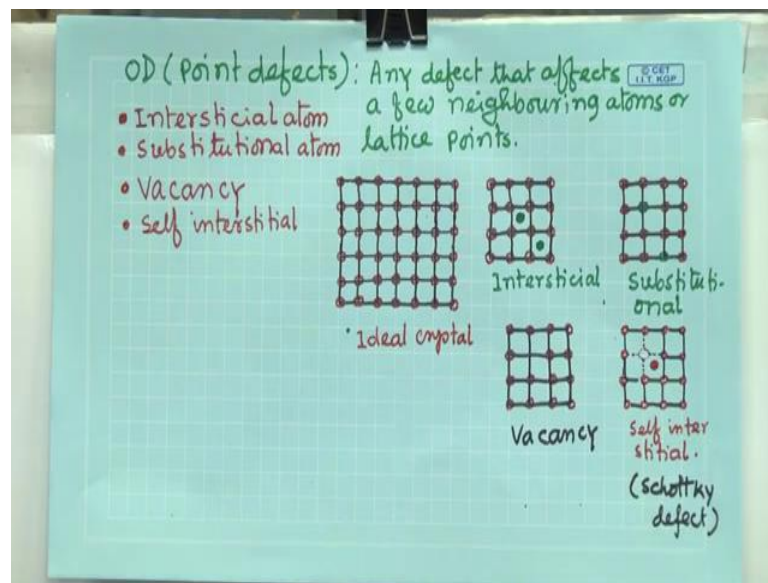 OD (Point defects): Any defect that affects
a few neighbouring atoms or
lattice points.
© CET
I.I.T. KGP
• Intersticial atom
• Substitutional atom
• Vacancy
• Self interstitial
Ideal crystal
Intersticial
Substituti-
onal
Vacancy
Self inter
stitial.
(Schottky
defect)